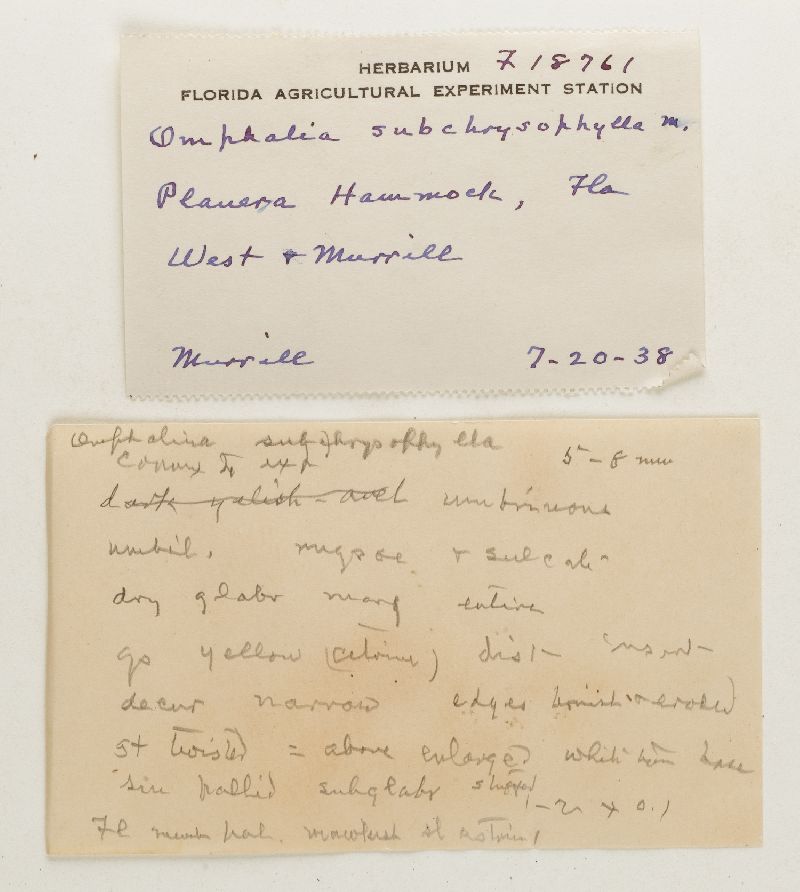 HERBARIUM F 18761
FLORIDA AGRICULTURAL EXPERIMENT STATION
Omphalia subchrysophylla M.
Planera Hammock, Fla
West & Murrill
Murrill 7-20-38
Omphalina subchrysophylla
convex to exp 5-8 mm
dark umbrinous
umbil. rugose & sulcate
dry glabr marg entire
yellow (citrine) dist
decur narrow edges eroded
st twisted = above enlarged base
sim pallid subglabr 1-2 x 0.1
Fl